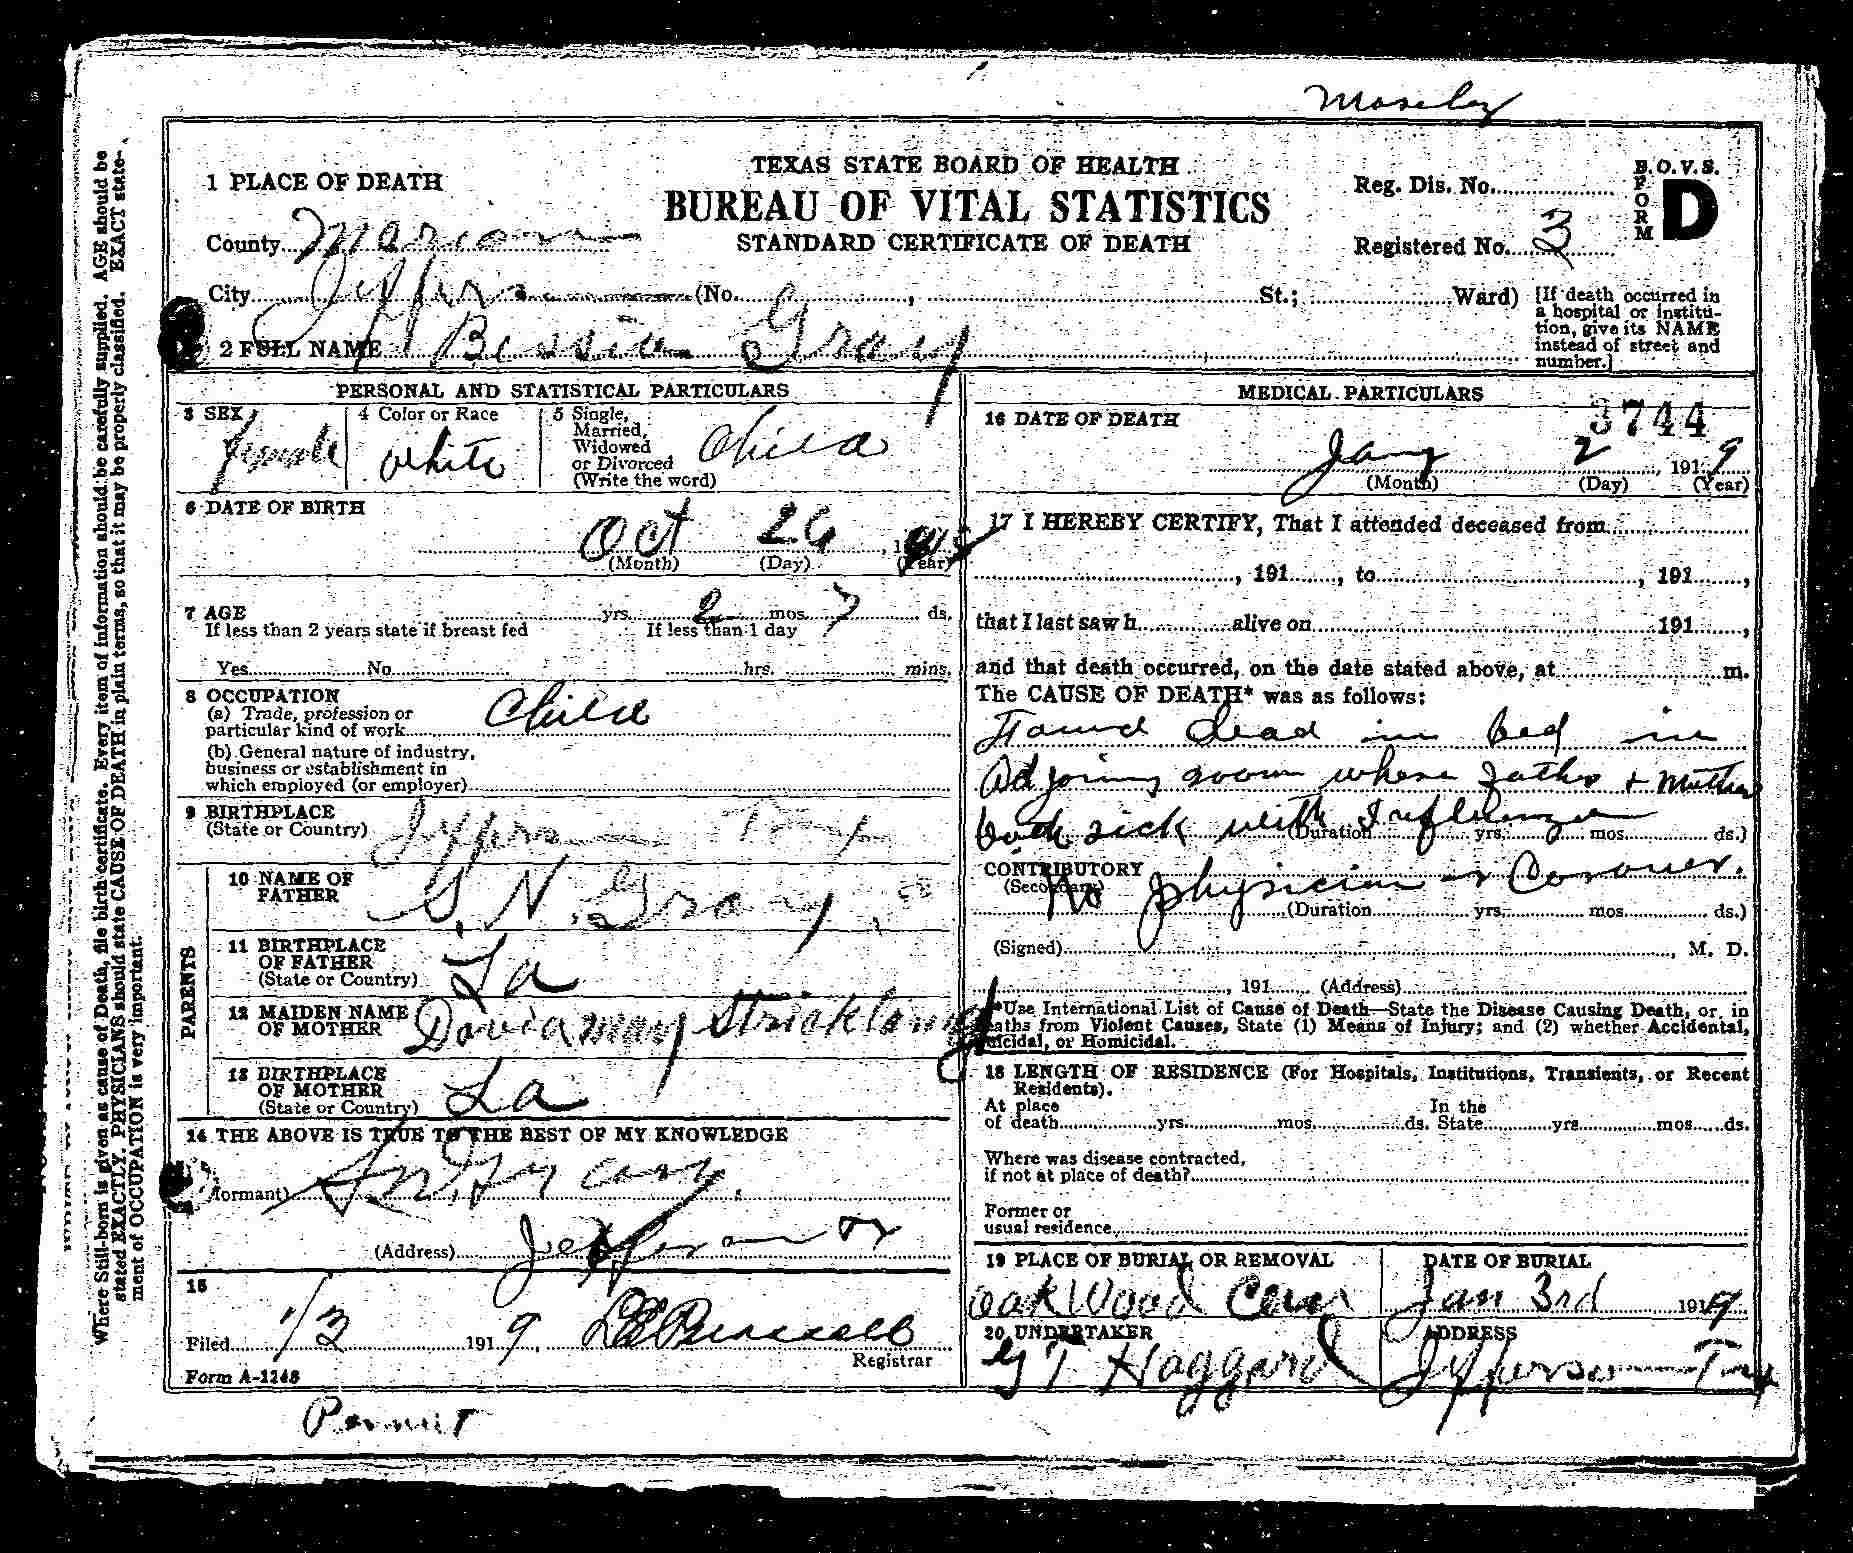 Moseley
TEXAS STATE BOARD OF HEALTH
BUREAU OF VITAL STATISTICS
STANDARD CERTIFICATE OF DEATH
Reg. Dis. No.
Registered No. 3
B.O.V.S.
FORM D
1 PLACE OF DEATH
County Marion
City Jefferson (No. , St.; Ward)
[If death occurred in
a hospital or institu-
tion, give its NAME
instead of street and
number.]
2 FULL NAME Bessie Gray
PERSONAL AND STATISTICAL PARTICULARS
3 SEX female
4 Color or Race white
5 Single,
Married,
Widowed
or Divorced
(Write the word) Child
6 DATE OF BIRTH
Oct 26, 1
(Month) (Day) (Year)
7 AGE yrs. 2 mos. 7 ds.
If less than 2 years state if breast fed If less than 1 day
Yes No hrs. mins.
8 OCCUPATION
(a) Trade, profession or
particular kind of work Child
(b) General nature of industry,
business or establishment in
which employed (or employer)
9 BIRTHPLACE
(State or Country) Jefferson Tex
PARENTS
10 NAME OF
FATHER S. N. Gray
11 BIRTHPLACE
OF FATHER
(State or Country) La
12 MAIDEN NAME
OF MOTHER Davia may Strickland
13 BIRTHPLACE
OF MOTHER
(State or Country) La
14 THE ABOVE IS TRUE TO THE BEST OF MY KNOWLEDGE
formant) Gray.
(Address) Jefferson Tx
15
Filed 1/3 1919.
Registrar
Form A-1248
Permit
MEDICAL PARTICULARS
16 DATE OF DEATH
3744
Jany 2, 1919
(Month) (Day) (Year)
17 I HEREBY CERTIFY, That I attended deceased from
, 191 , to , 191 ,
that I last saw h alive on 191 ,
and that death occurred, on the date stated above, at m.
The CAUSE OF DEATH* was as follows:
Found dead in bed in
Adjoining room where father + mother
both sick with Influenza
(Duration yrs. mos. ds.)
CONTRIBUTORY
(Secondary) No physician or Coroner.
(Duration yrs. mos. ds.)
(Signed) , M. D.
, 191 (Address)
*Use International List of Cause of Death—State the Disease Causing Death, or, in
eaths from Violent Causes, State (1) Means of Injury; and (2) whether Accidental,
uicidal, or Homicidal.
18 LENGTH OF RESIDENCE (For Hospitals, Institutions, Transients, or Recent
Residents).
At place In the
of death yrs. mos. ds. State yrs. mos. ds.
Where was disease contracted,
if not at place of death?
Former or
usual residence
19 PLACE OF BURIAL OR REMOVAL
Oak Wood Cem
DATE OF BURIAL
Jan 3rd 1919
20 UNDERTAKER
G T Haggard
ADDRESS
Jefferson Tex
Where Still-born is given as cause of Death, file birth certificate. Every item of information should be carefully supplied. AGE should be
stated EXACTLY. PHYSICIANS should state CAUSE OF DEATH in plain terms, so that it may be properly classified. EXACT state-
ment of OCCUPATION is very important.